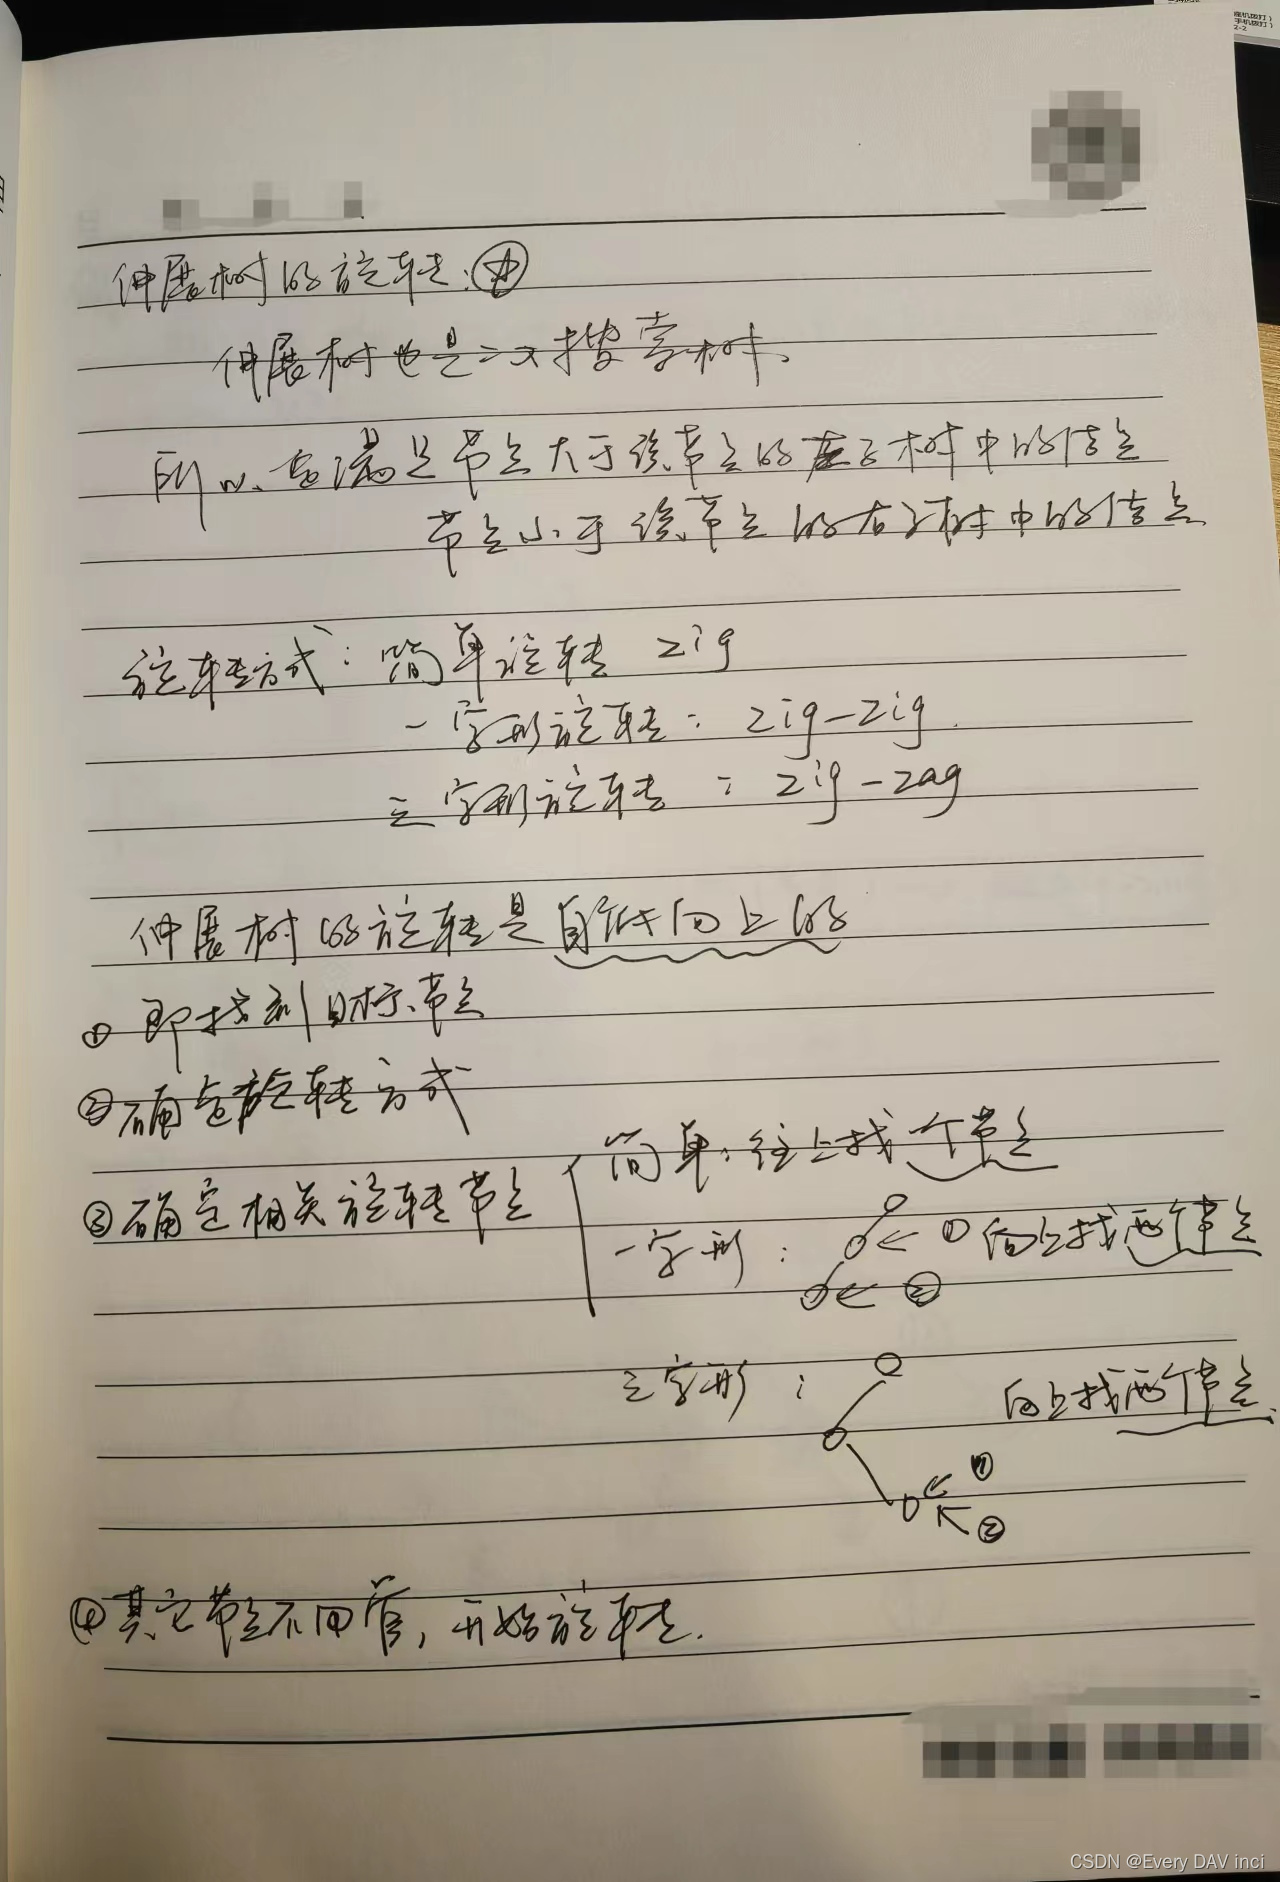 伸展树的旋转:
伸展树也是二叉搜索树、
所以、也满足节点大于该节点的左子树中的结点
节点小于该节点的右子树中的结点
旋转方式: 简单旋转 zig
一字形旋转: zig-zig
之字形旋转: zig-zag
伸展树的旋转是自底向上的
① 即找到目标节点
② 确定旋转方式
③ 确定相关旋转节点
简单: 往上找一个节点
一字形: ① 向上找两个节点
②
之字形: 向上找两个节点.
①
②
④ 其它节点不用管, 开始旋转.
CSDN @Every DAV inci